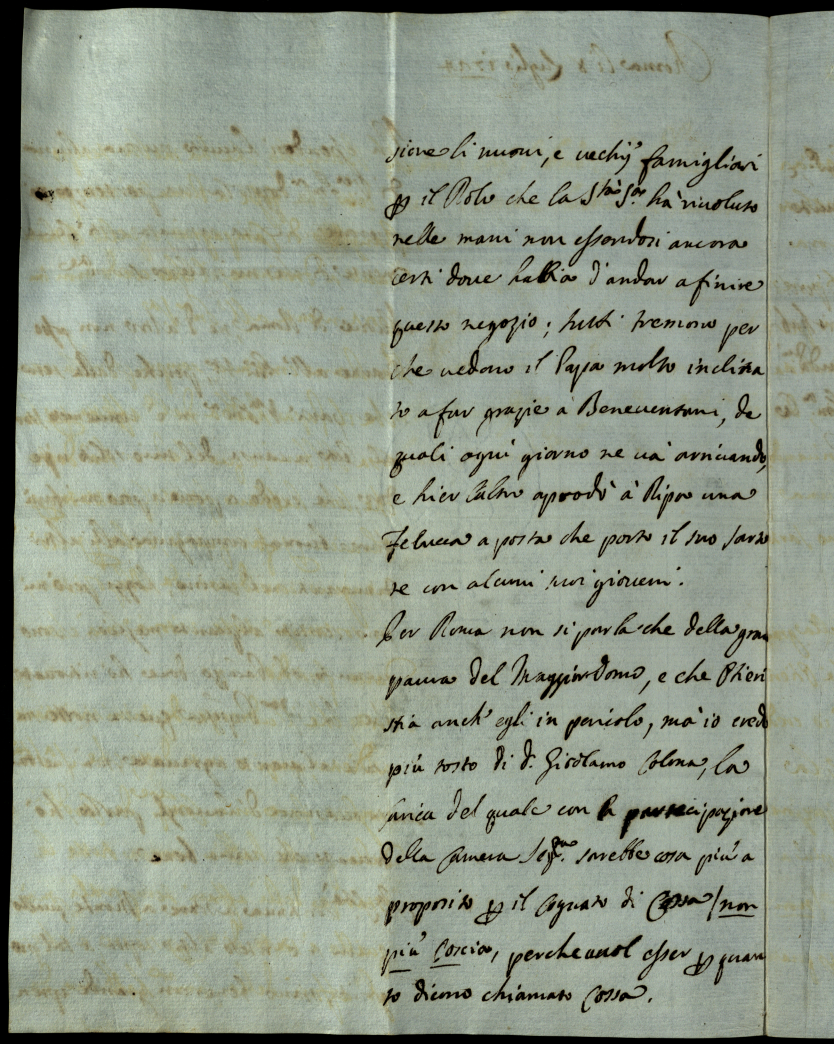 sione li nuovi, e vechij famigliari
ꝑ il Rolo che la Stà Sua hà rivoluto
nelle mani non essendosi ancora
certi dove habbia d'andar a finire
questo negozio; tutti tremono per
che vedono il Papa molto inclina
to a far grazie à Beneventani, de
quali ogni giorno ne và arrivando,
e hier l'altro aprodò à Ripa una
Felucca a posta che portò il suo sarto
re con alcuni suoi gioveni.
Per Roma non si parla che della gran
paura del Maggiordomo, e che
stia anch'egli in pericolo, mà io credo
più tosto di D. Girolamo Colona, la
carica del quale con la partecipazione
della Camera Segta. sarebbe cosa più a
proposito ꝑ il Cognato di Cossa / non
più Coscia, perche vuol esser ꝑ quan
to dicono chiamato Cossa.